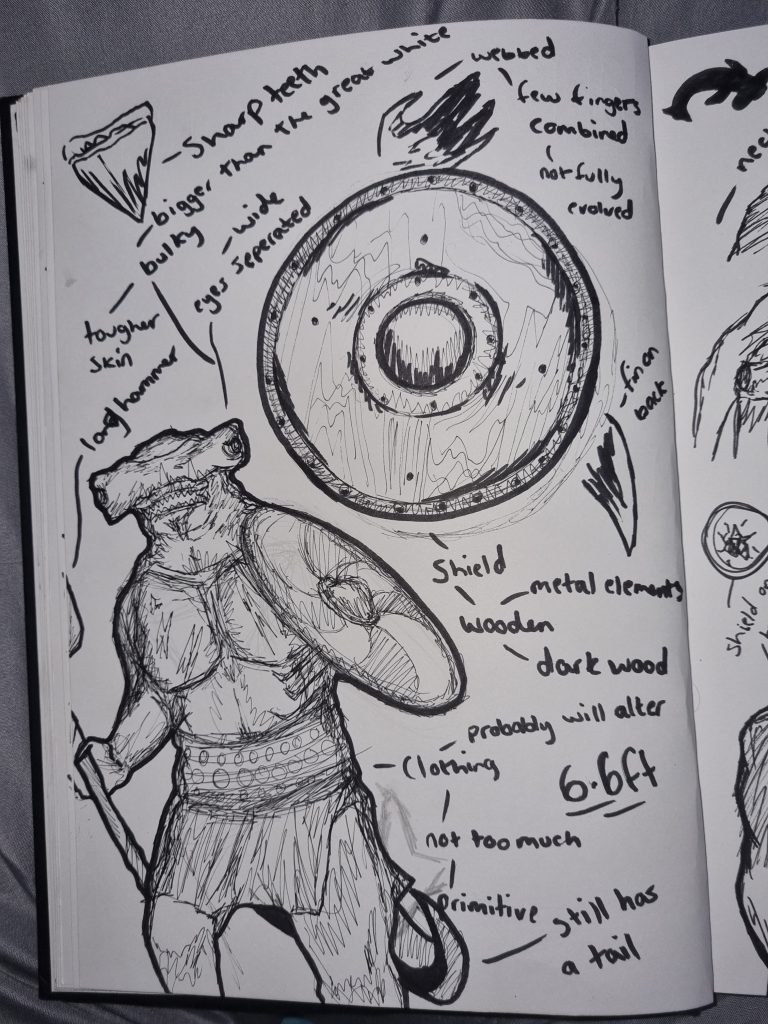 Sharp teeth
bigger than the great white
bulky
tougher
skin
wide
eyes seperated
long hammer
webbed
few fingers
combined
not fully
evolved
fin on
back
Shield
metal elements
wooden
dark wood
probably will alter
Clothing
6.6ft
not too much
primitive
still has
a tail
Shield on